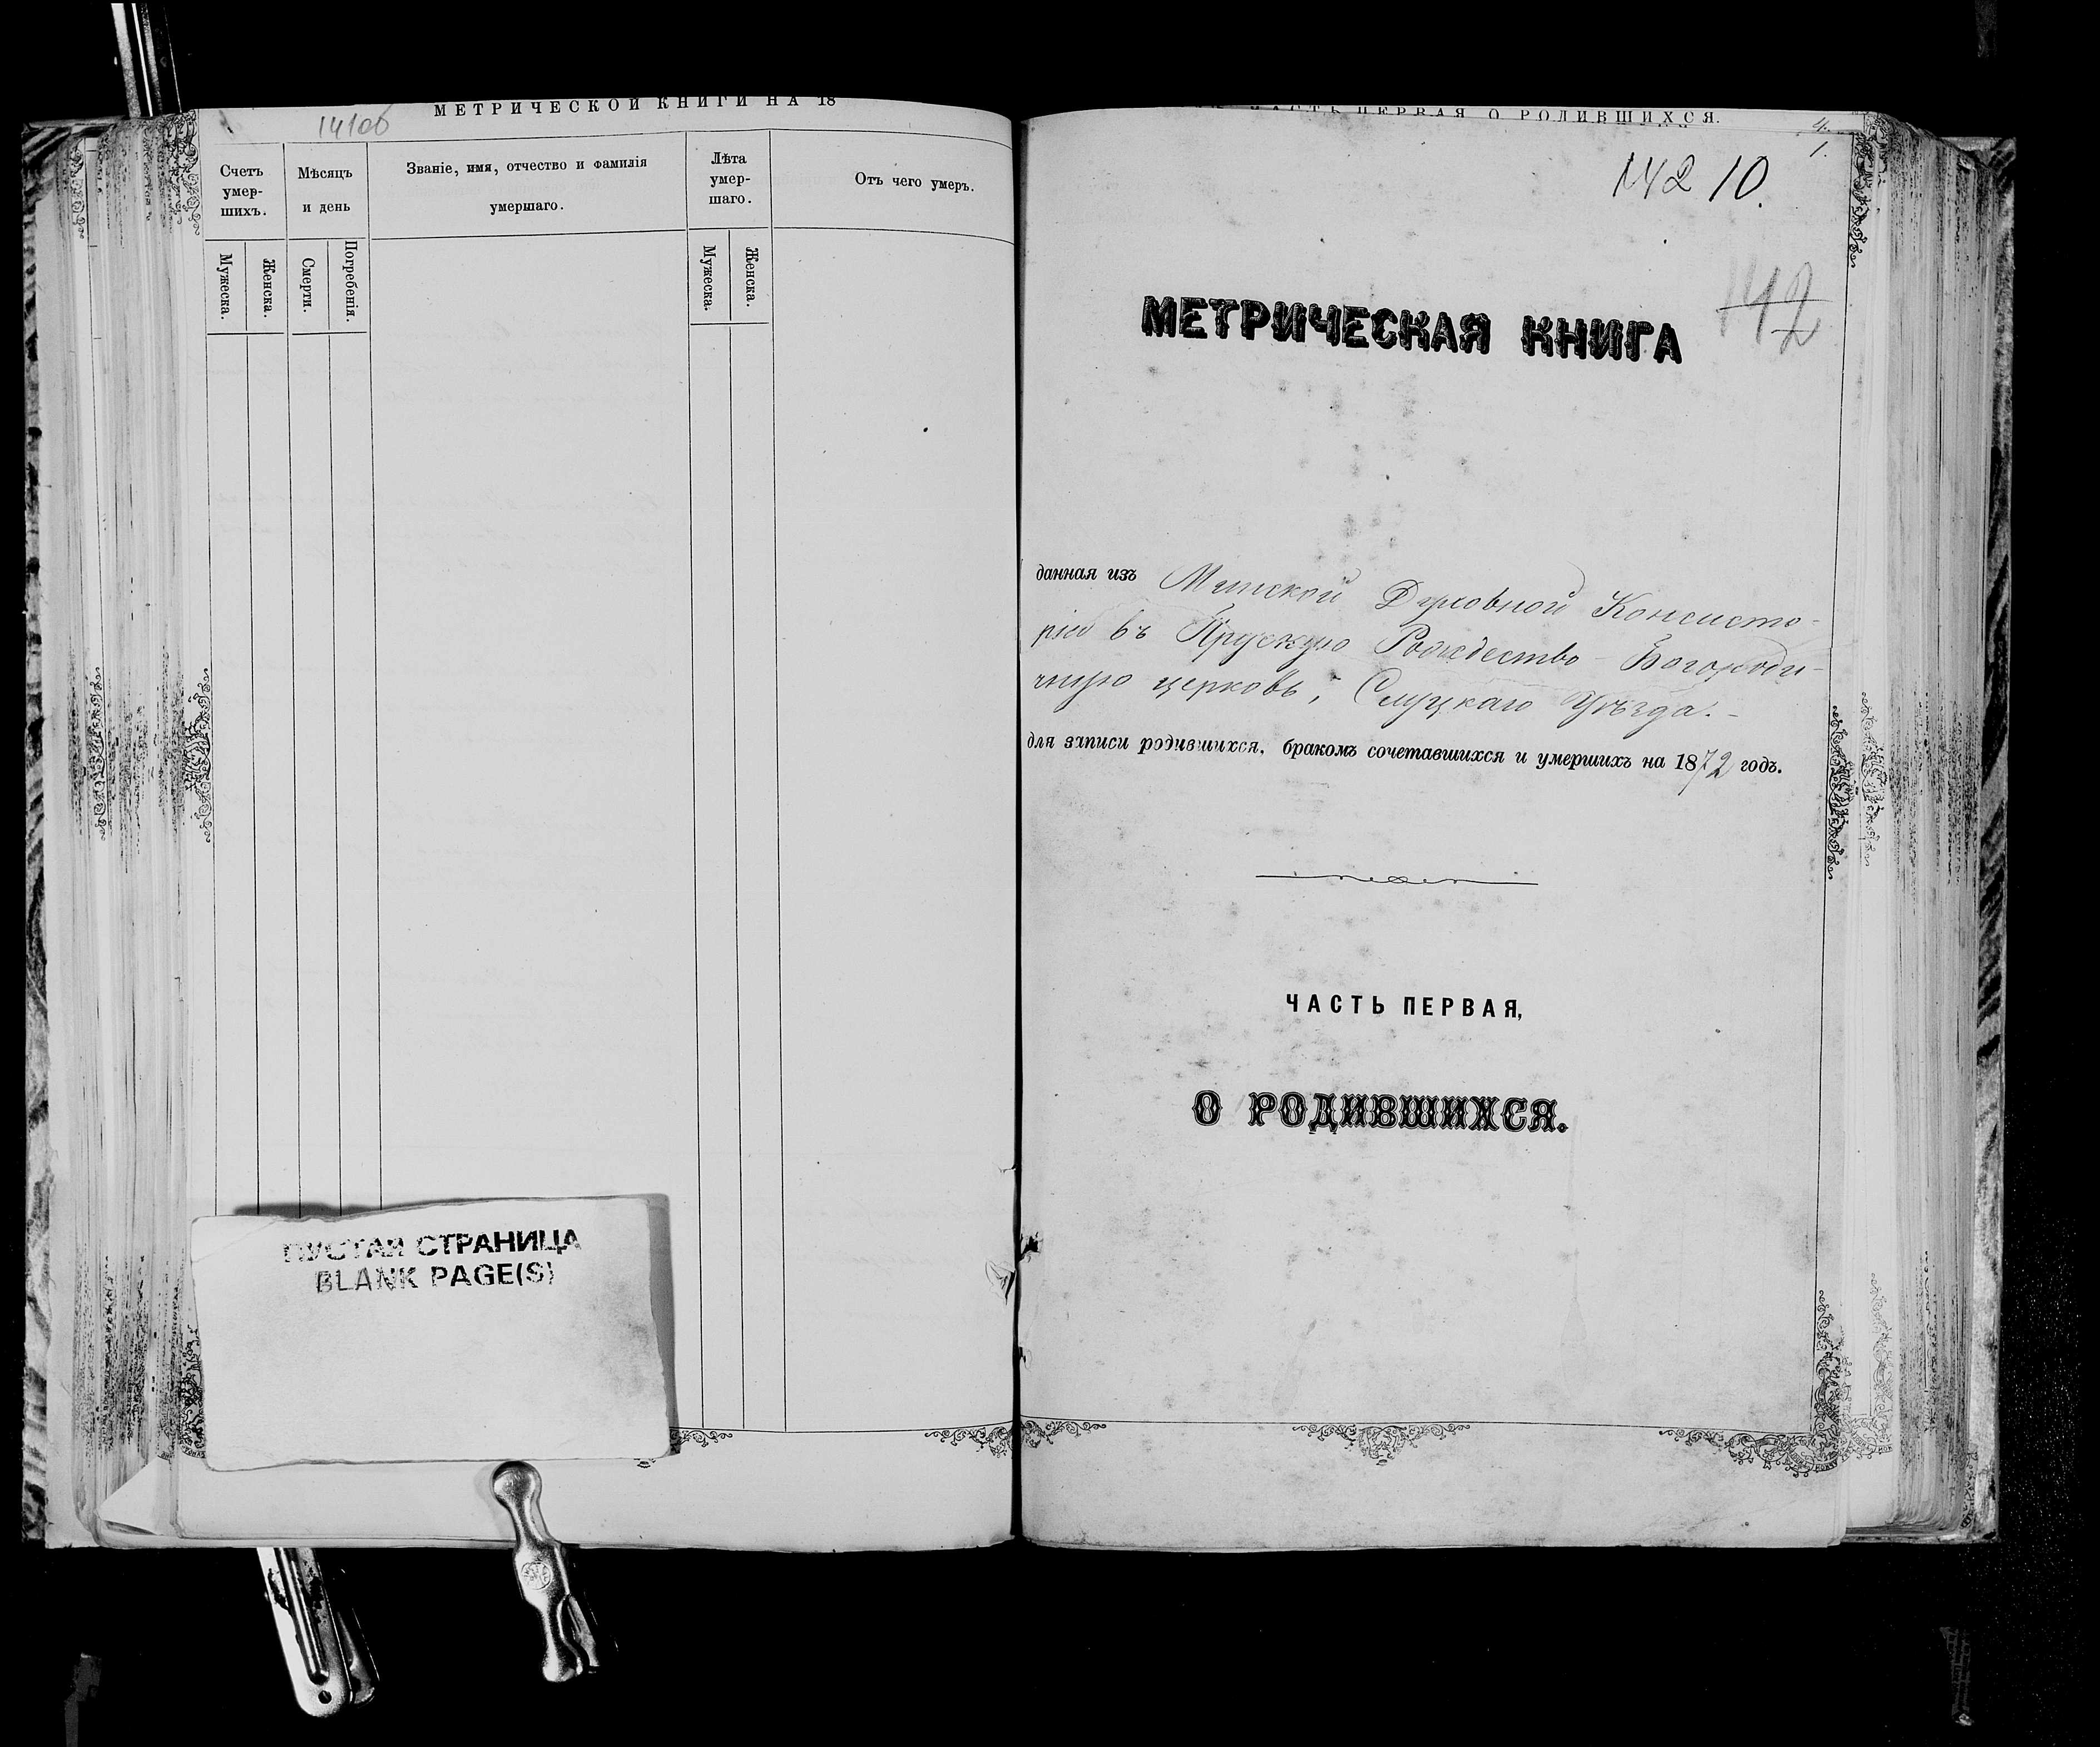 МЕТРИЧЕСКОЙ КНИГИ НА 18
141об
Счетъ умер-шихъ.
Мѣсяцъ и день
Званіе, имя, отчество и фамилія
умершаго.
Лѣта умер-шаго.
Отъ чего умеръ.
Мужеска.
Женска.
Смерти.
Погребенія.
Мужеска.
Женска.
ПУСТАЯ СТРАНИЦА
BLANK PAGE(S)
ЧАСТЬ ПЕРВАЯ О РОДИВШИХСЯ.
4.
1.
142 10.
142
МЕТРИЧЕСКАЯ КНИГА
данная изъ Минской Духовной Консисто-
ріи въ Прускую Рождество-Богороди-
чную церковь, Слуцкаго Уѣзда.-
для записи родившихся, бракомъ сочетавшихся и умершихъ на 1872 годъ.
ЧАСТЬ ПЕРВАЯ,
О РОДИВШИХСЯ.